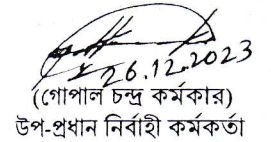 26.12.2023
(গোপাল চন্দ্র কর্মকার)
উপ-প্রধান নির্বাহী কর্মকর্তা